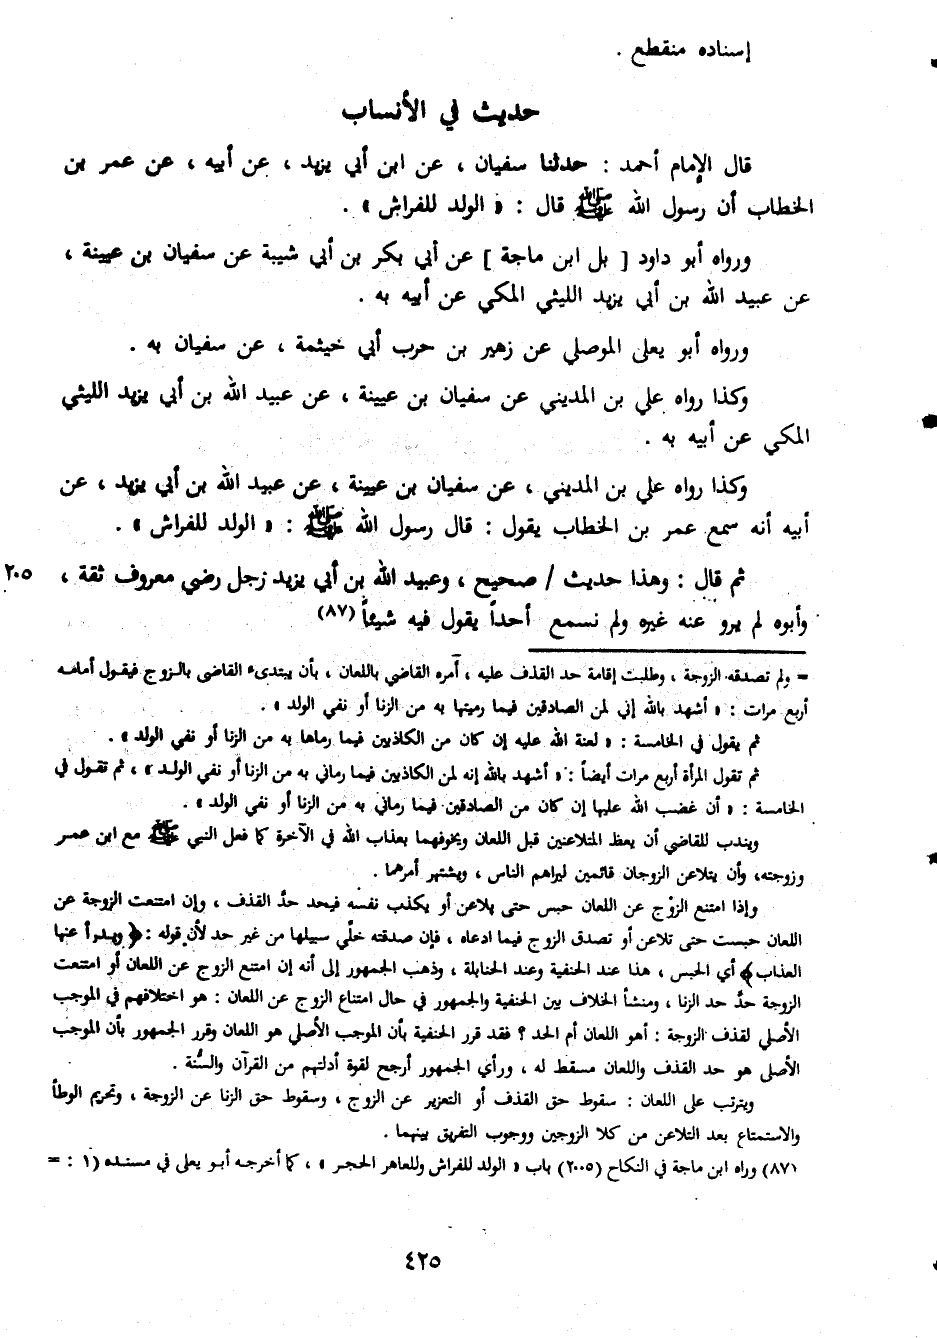 إسناده منقطع .
حديث في الأنساب
قال الإمام أحمد : حدثنا سفيان ، عن ابن أبي يزيد ، عن أبيه ، عن عمر بن
الخطاب أن رسول الله ﷺ قال : « الولد للفراش » .
ورواه أبو داود [ بل ابن ماجة ] عن أبي بكر بن أبي شيبة عن سفيان بن عيينة ،
عن عبيد الله بن أبي يزيد الليثي المكي عن أبيه به .
ورواه أبو يعلى الموصلي عن زهير بن حرب أبي خيثمة ، عن سفيان به .
وكذا رواه علي بن المديني عن سفيان بن عيينة ، عن عبيد الله بن أبي يزيد الليثي
المكي عن أبيه به .
وكذا رواه علي بن المديني ، عن سفيان بن عيينة ، عن عبيد الله بن أبي يزيد ، عن
أبيه أنه سمع عمر بن الخطاب يقول : قال رسول الله ﷺ : « الولد للفراش » .
ثم قال : وهذا حديث / صحيح ، وعبيد الله بن أبي يزيد زجل رضي معروف ثقة ، ٢٠٥
وأبوه لم يرو عنه غيره ولم نسمع أحداً يقول فيه شيئاً (٨٧)
= ولم تصدقه الزوجة ، وطلبت إقامة حد القذف عليه ، أمره القاضي باللعان ، بأن يبتدىء القاضى بالزوج فيقول أمامه
أربع مرات : « أشهد بالله إني لمن الصادقين فيما رميتها به من الزنا أو نفي الولد » .
ثم يقول في الخامسة : « لعنة الله عليه إن كان من الكاذبين فيما رماها به من الزنا أو نفي الولد » .
ثم تقول المرأة أربع مرات أيضاً : « أشهد بالله إنه لمن الكاذبين فيما رماني به من الزنا أو نفي الولد » ، ثم تقول في
الخامسة : « أن غضب الله عليها إن كان من الصادقين فيما رماني به من الزنا أو نفي الولد » .
ويندب للقاضي أن يعظ المتلاعنين قبل اللعان ويخوفهما بعذاب الله في الآخرة كما فعل النبي ﷺ مع ابن عمر
وزوجته، وأن يتلاعن الزوجان قائمين ليراهم الناس ، ويشتهر أمرهما .
وإذا امتنع الزوج عن اللعان حبس حتى يلاعن أو يكذب نفسه فيحد حدَّ القذف ، وإن امتنعت الزوجة عن
اللعان حبست حتى تلاعن أو تصدق الزوج فيما ادعاه ، فإن صدقته خلّي سبيلها من غير حد لأن قوله : ﴿ ويدرأ عنها
العذاب﴾ أي الحبس ، هذا عند الحنفية وعند الحنابلة ، وذهب الجمهور إلى أنه إن امتنع الزوج عن اللعان أو امتنعت
الزوجة حدَّ حد الزنا ، ومنشأ الخلاف بين الحنفية والجمهور في حال امتناع الزوج عن اللعان : هو اختلافهم في الموجب
الأصلي لقذف الزوجة : أهو اللعان أم الحد ؟ فقد قرر الحنفية بأن الموجب الأصلي هو اللعان وقرر الجمهور بأن الموجب
الأصلي هو حد القذف واللعان مسقط له ، ورأي الجمهور أرجح لقوة أدلتهم من القرآن والسُّنة .
ويترتب على اللعان : سقوط حق القذف أو التعزير عن الزوج ، وسقوط حق الزنا عن الزوجة ، وتحريم الوطأ
والاستمتاع بعد التلاعن من كلا الزوجين ووجوب التفريق بينهما .
(٨٧) وراه ابن ماجة في النكاح (٢٠٠٥) باب « الولد للفراش وللعاهر الحجر » ، كما أخرجه أبو يعلى في مسنده (١ : =
٤٢٥